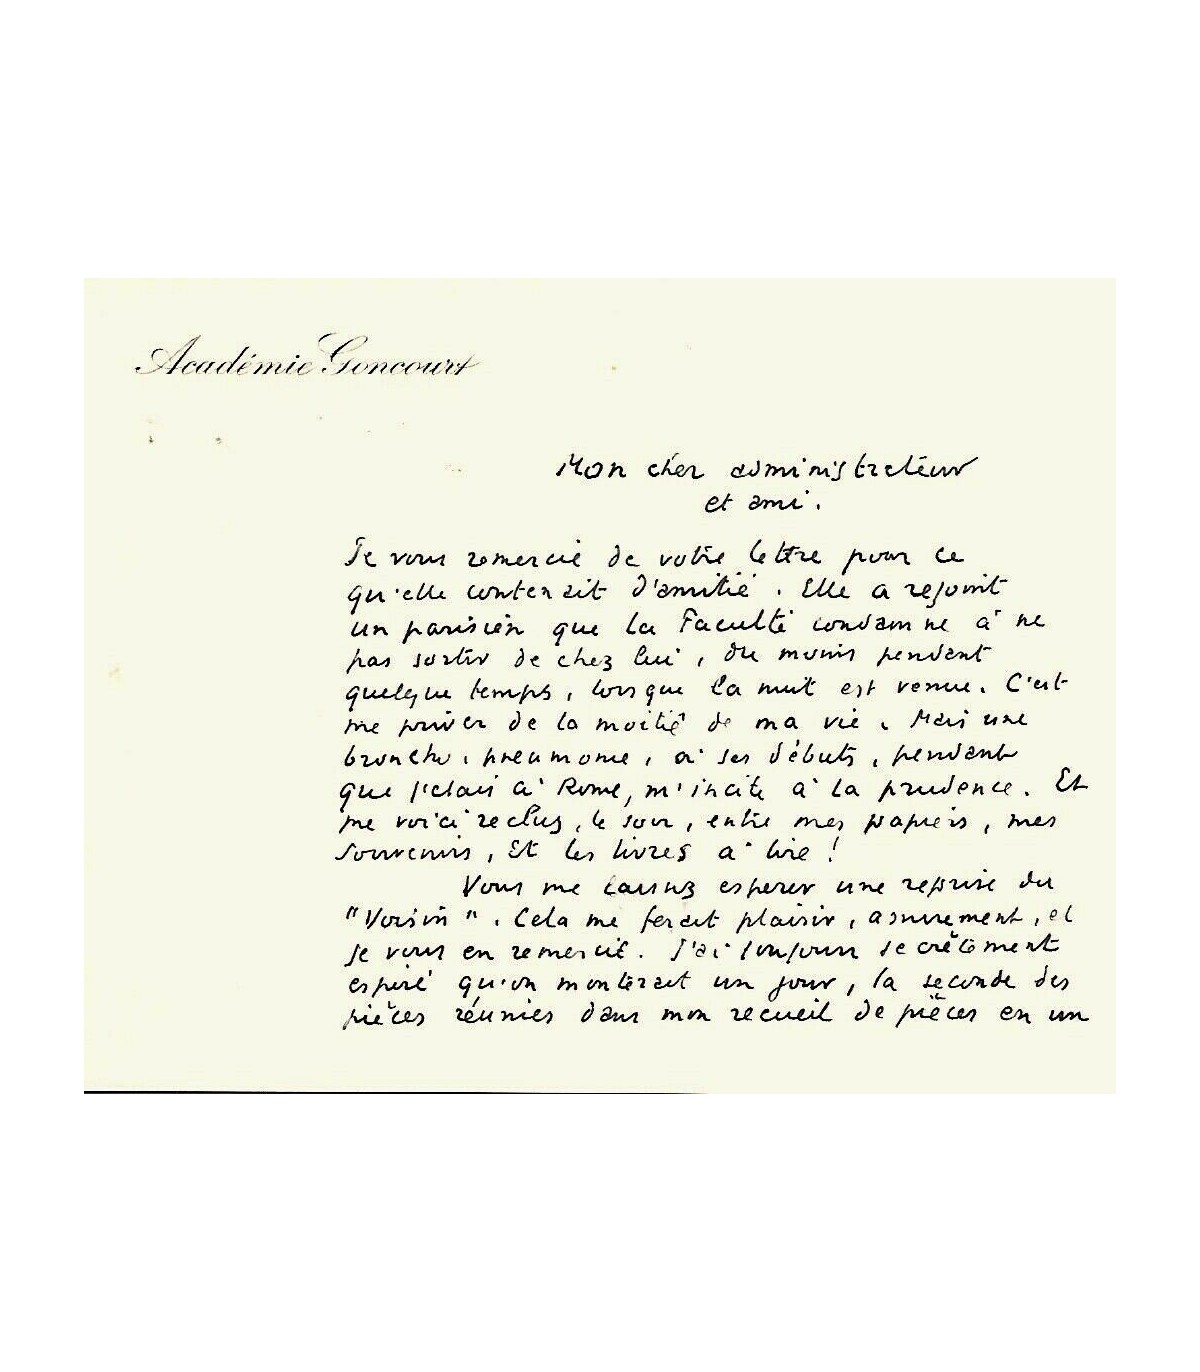 Académie Goncourt
Mon cher administrateur
et ami.
Je vous remercie de votre lettre pour ce
qu'elle contenait d'amitié. Elle a rejoint
un parisien que la Faculté condamne à ne
pas sortir de chez lui, du moins pendant
quelque temps, lorsque la nuit est venue. C'est
me priver de la moitié de ma vie. Mais une
broncho-pneumonie, à ses débuts, pendant
que j'étais à Rome, m'incite à la prudence. Et
me voici reclus, le soir, entre mes papiers, mes
souvenirs, Et les livres à lire !
Vous me laissez espérer une reprise du
"Voisin". Cela me ferait plaisir, assurément, et
je vous en remercie. J'ai toujours secrètement
espéré qu'on monterait un jour, la seconde des
pièces réunies dans mon recueil de pièces en un